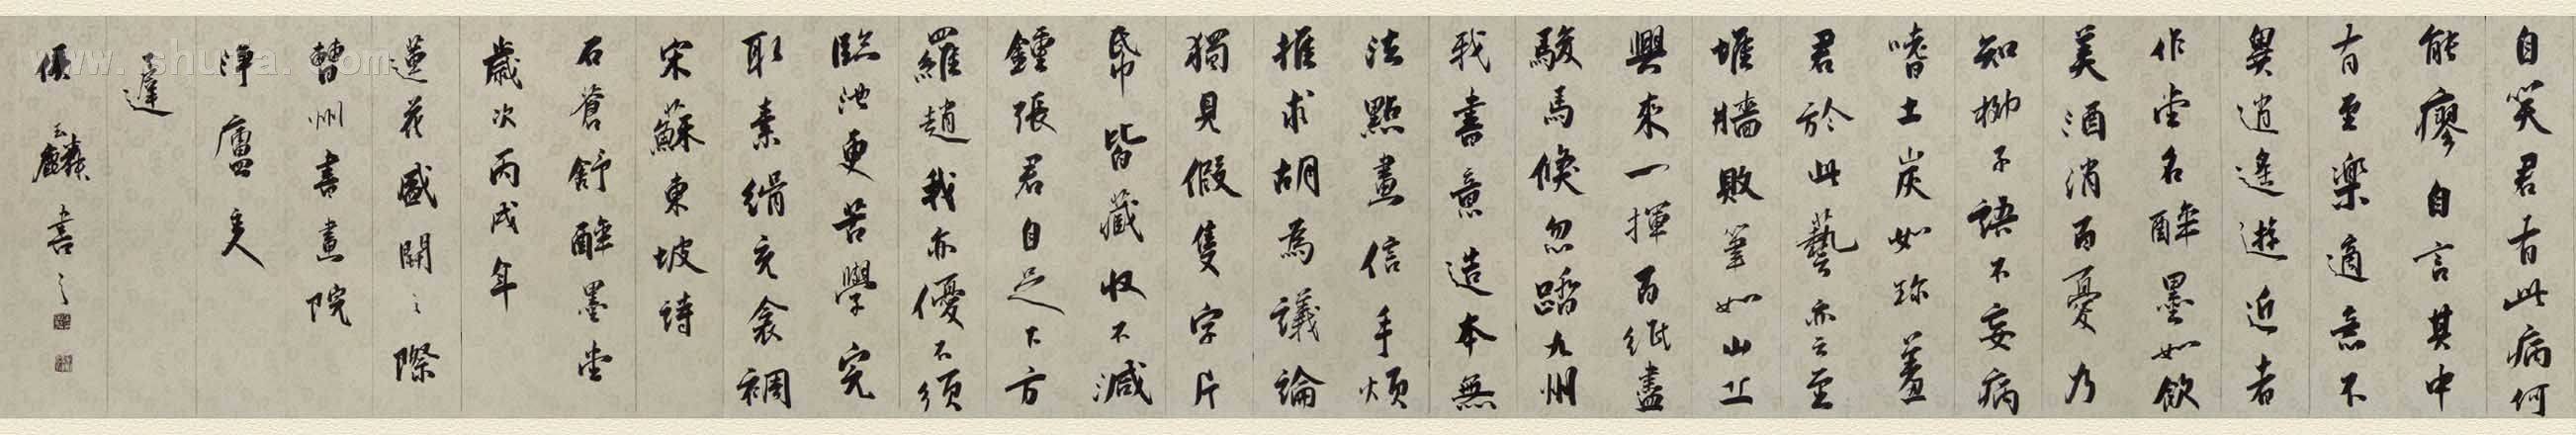 自笑君有此病何
能瘳自言其中
有至樂適意不
異逍遙遊近者
作堂名醉墨如飲
美酒消百憂乃
知柳子語不妄病
嗜土炭如珍羞
君於此藝亦云至
堆牆敗筆如山丘
興來一揮百紙盡
駿馬倏忽踏九州
我書意造本無
法點畫信手煩
推求胡為議論
獨見假隻字片
帋皆藏收不減
鍾張君自足下方
羅趙我亦優不須
臨池更苦學完
取素絹充衾裯
宋蘇東坡詩
石蒼舒醉墨堂
歲次丙戌年
蓮花盛開之際
曹州書畫院
淨廬
書之